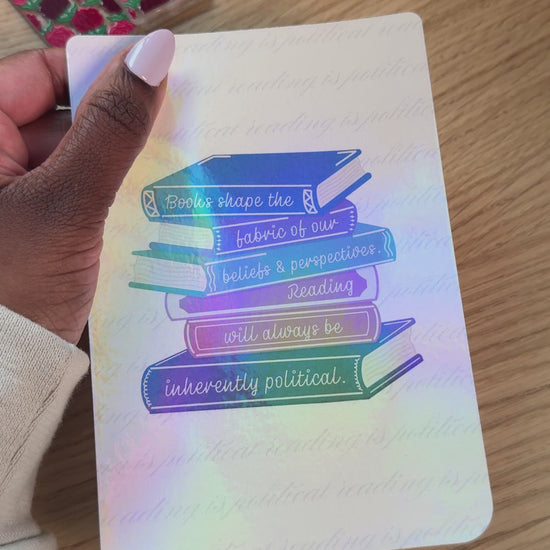 reading is political reading is political
Books shape the
fabric of our
beliefs & perspectives.
Reading
will always be
inherently political.
reading is political reading is political
reading is political reading is political